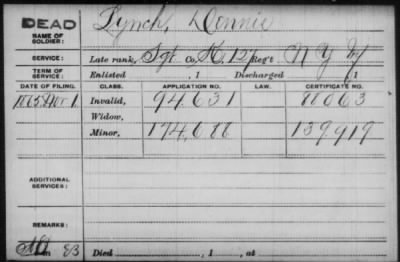 DEAD
NAME OF SOLDIER: Lynch, Dennis
SERVICE: Late rank, Sgt Co. K, 12 Reg't N Y
TERM OF SERVICE: Enlisted , 1 Discharged , 1
DATE OF FILING. CLASS. APPLICATION NO. LAW. CERTIFICATE NO.
1865 Nov. 1 Invalid, 94,631 88063
Widow,
Minor, 174,686 139919
ADDITIONAL SERVICES:
REMARKS:
83 Died , 1 , at